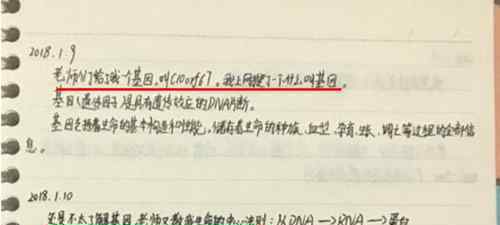 2018.1.9
老师们给了我一个基因,叫C10orf67。我上网搜了一下什么叫基因。
基因(遗传因子)是具有遗传效应的DNA片断。
基因支持着生命的基本构造和性能。储存着生命的种族、血型、孕育、生长、凋亡等过程的全部信
息。
2018.1.10
还是不太了解基因,老师又教我生命的中心法则:从DNA→RNA→蛋白